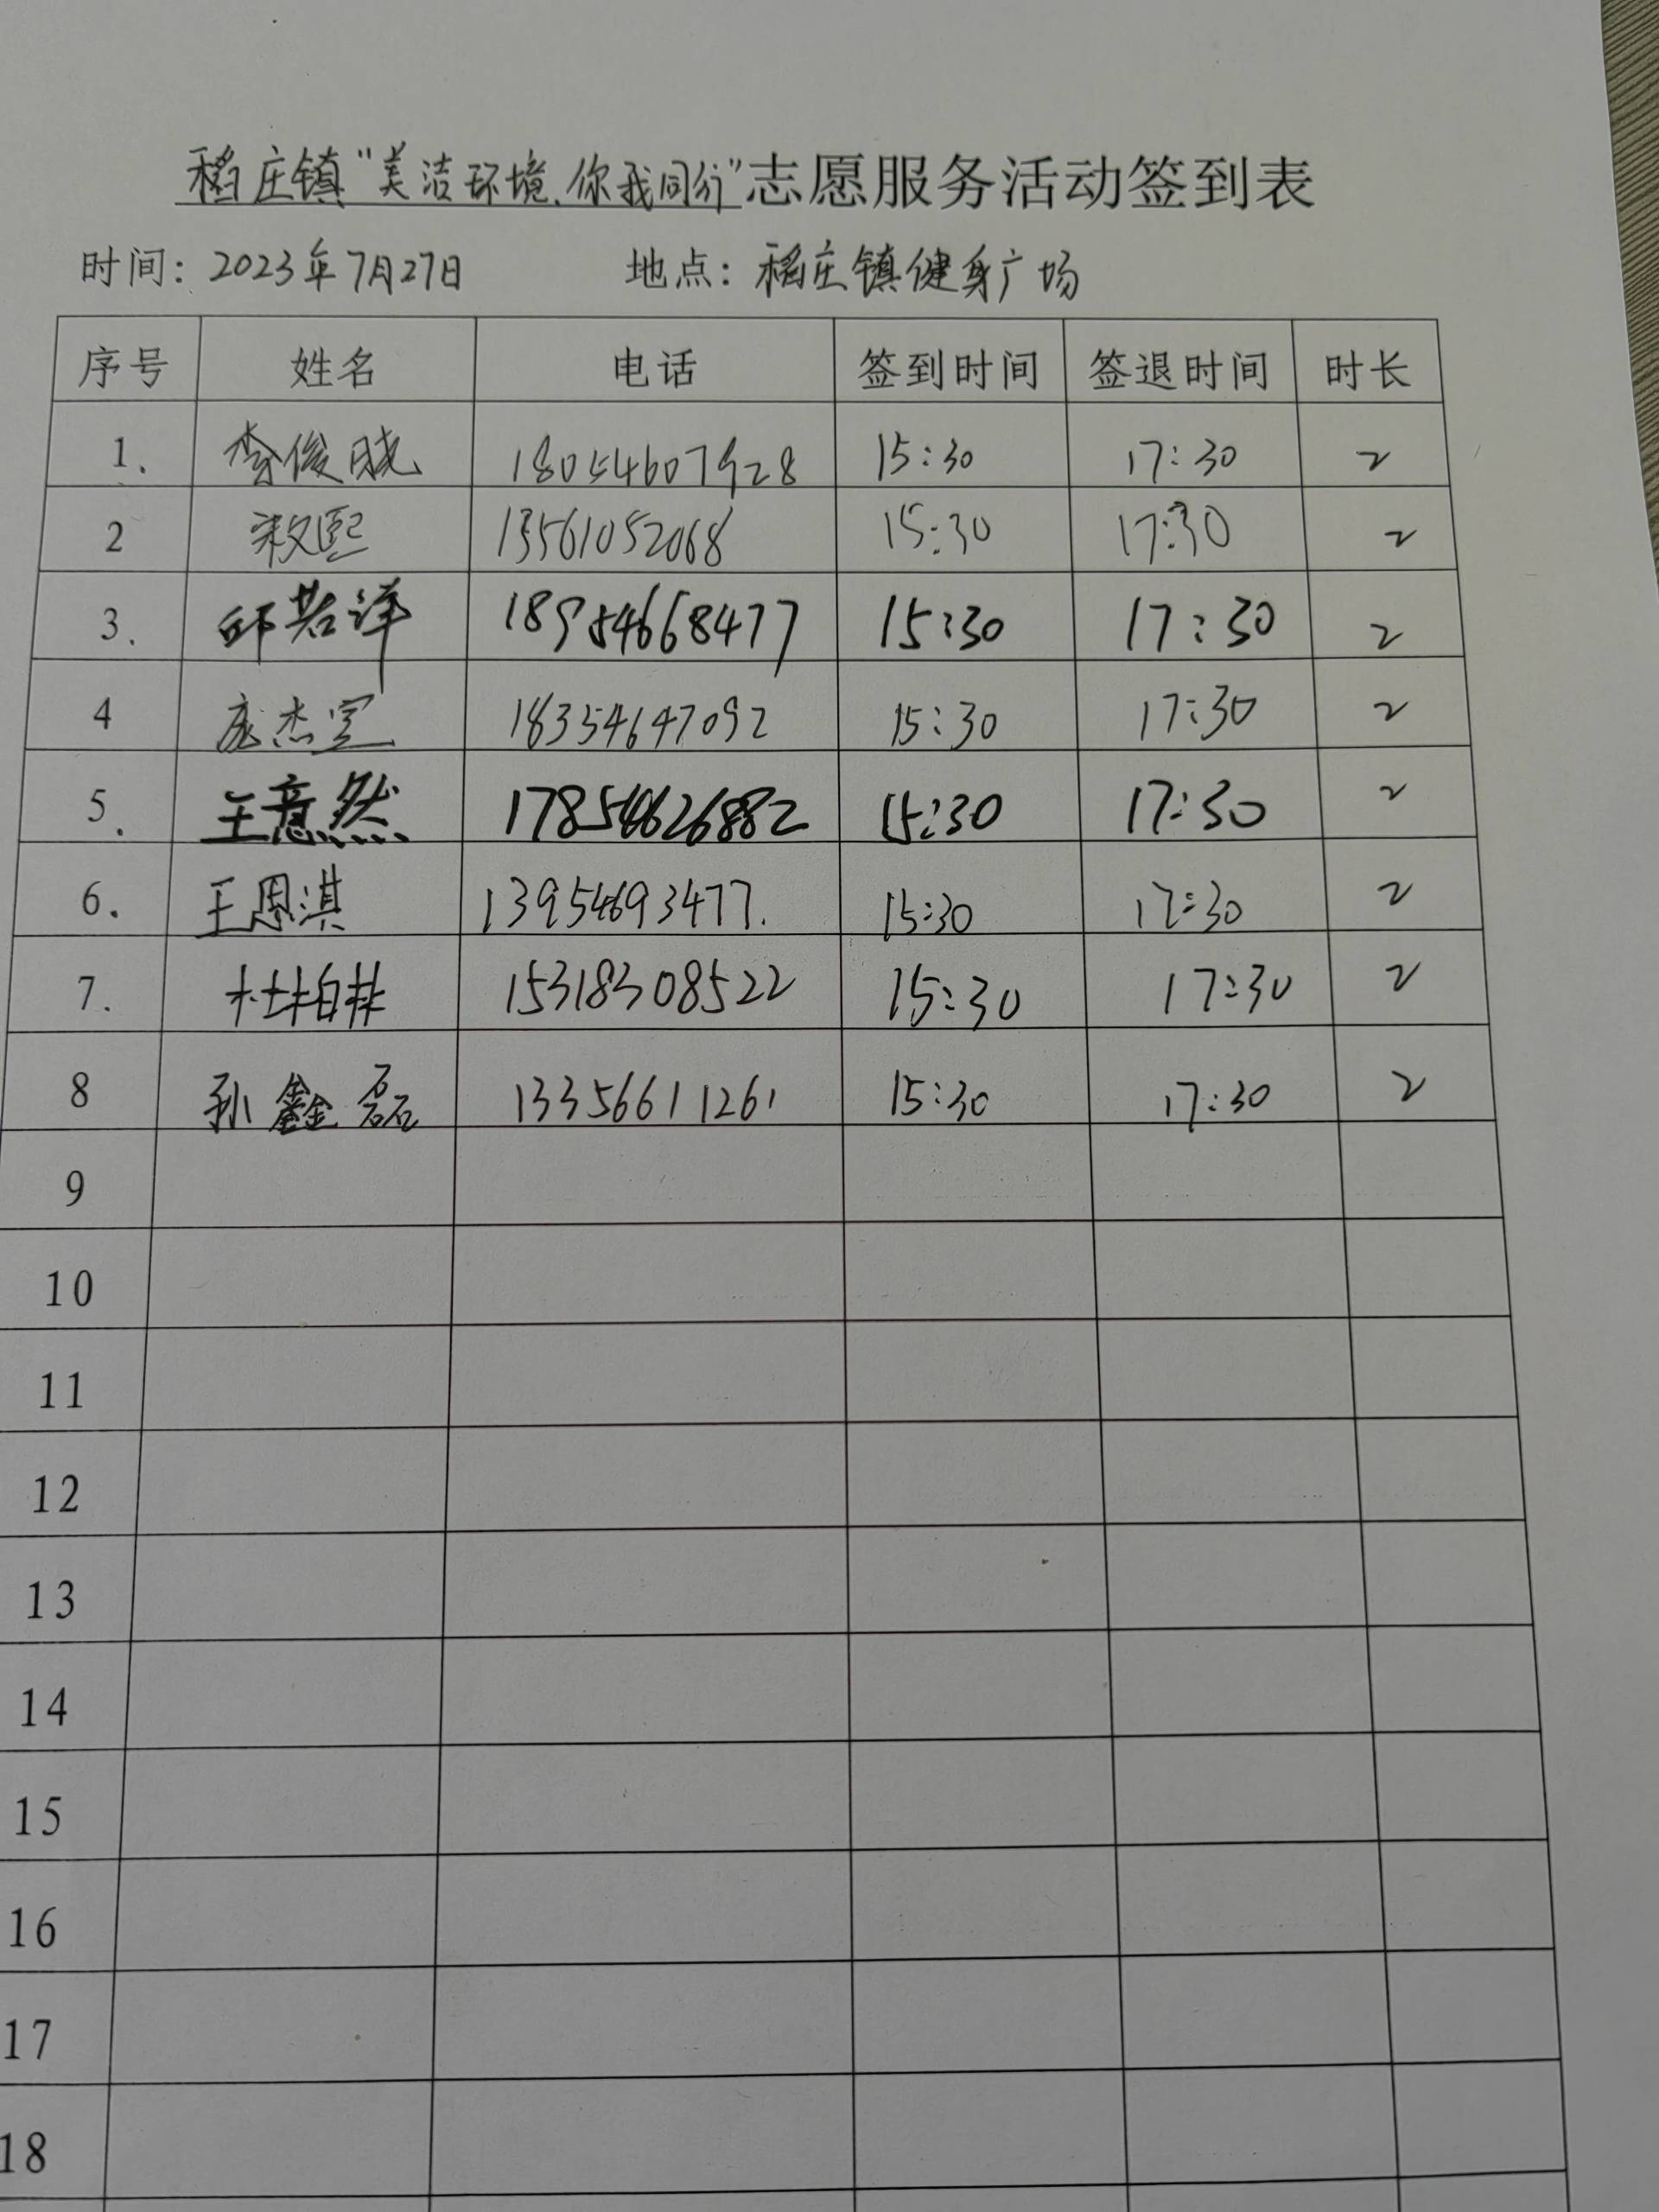 稻庄镇"美洁环境、你我同行"志愿服务活动签到表
时间：2023年7月27日 地点：稻庄镇健身广场
序号 姓名 电话 签到时间 签退时间 时长
1. 李俊晓 18054607928 15:30 17:30 2
2 宋文熙 13561052068 15:30 17:30 2
3. 邱若洋 18954668477 15:30 17:30 2
4 庞杰宣 18354647092 15:30 17:30 2
5. 王意然 17854626882 15:30 17:30 2
6. 王恩淇 13954693477. 15:30 17:30 2
7. 15318308522 15:30 17:30 2
8 孙鑫磊 13356611261 15:30 17:30 2
9
10
11
12
13
14
15
16
17
18